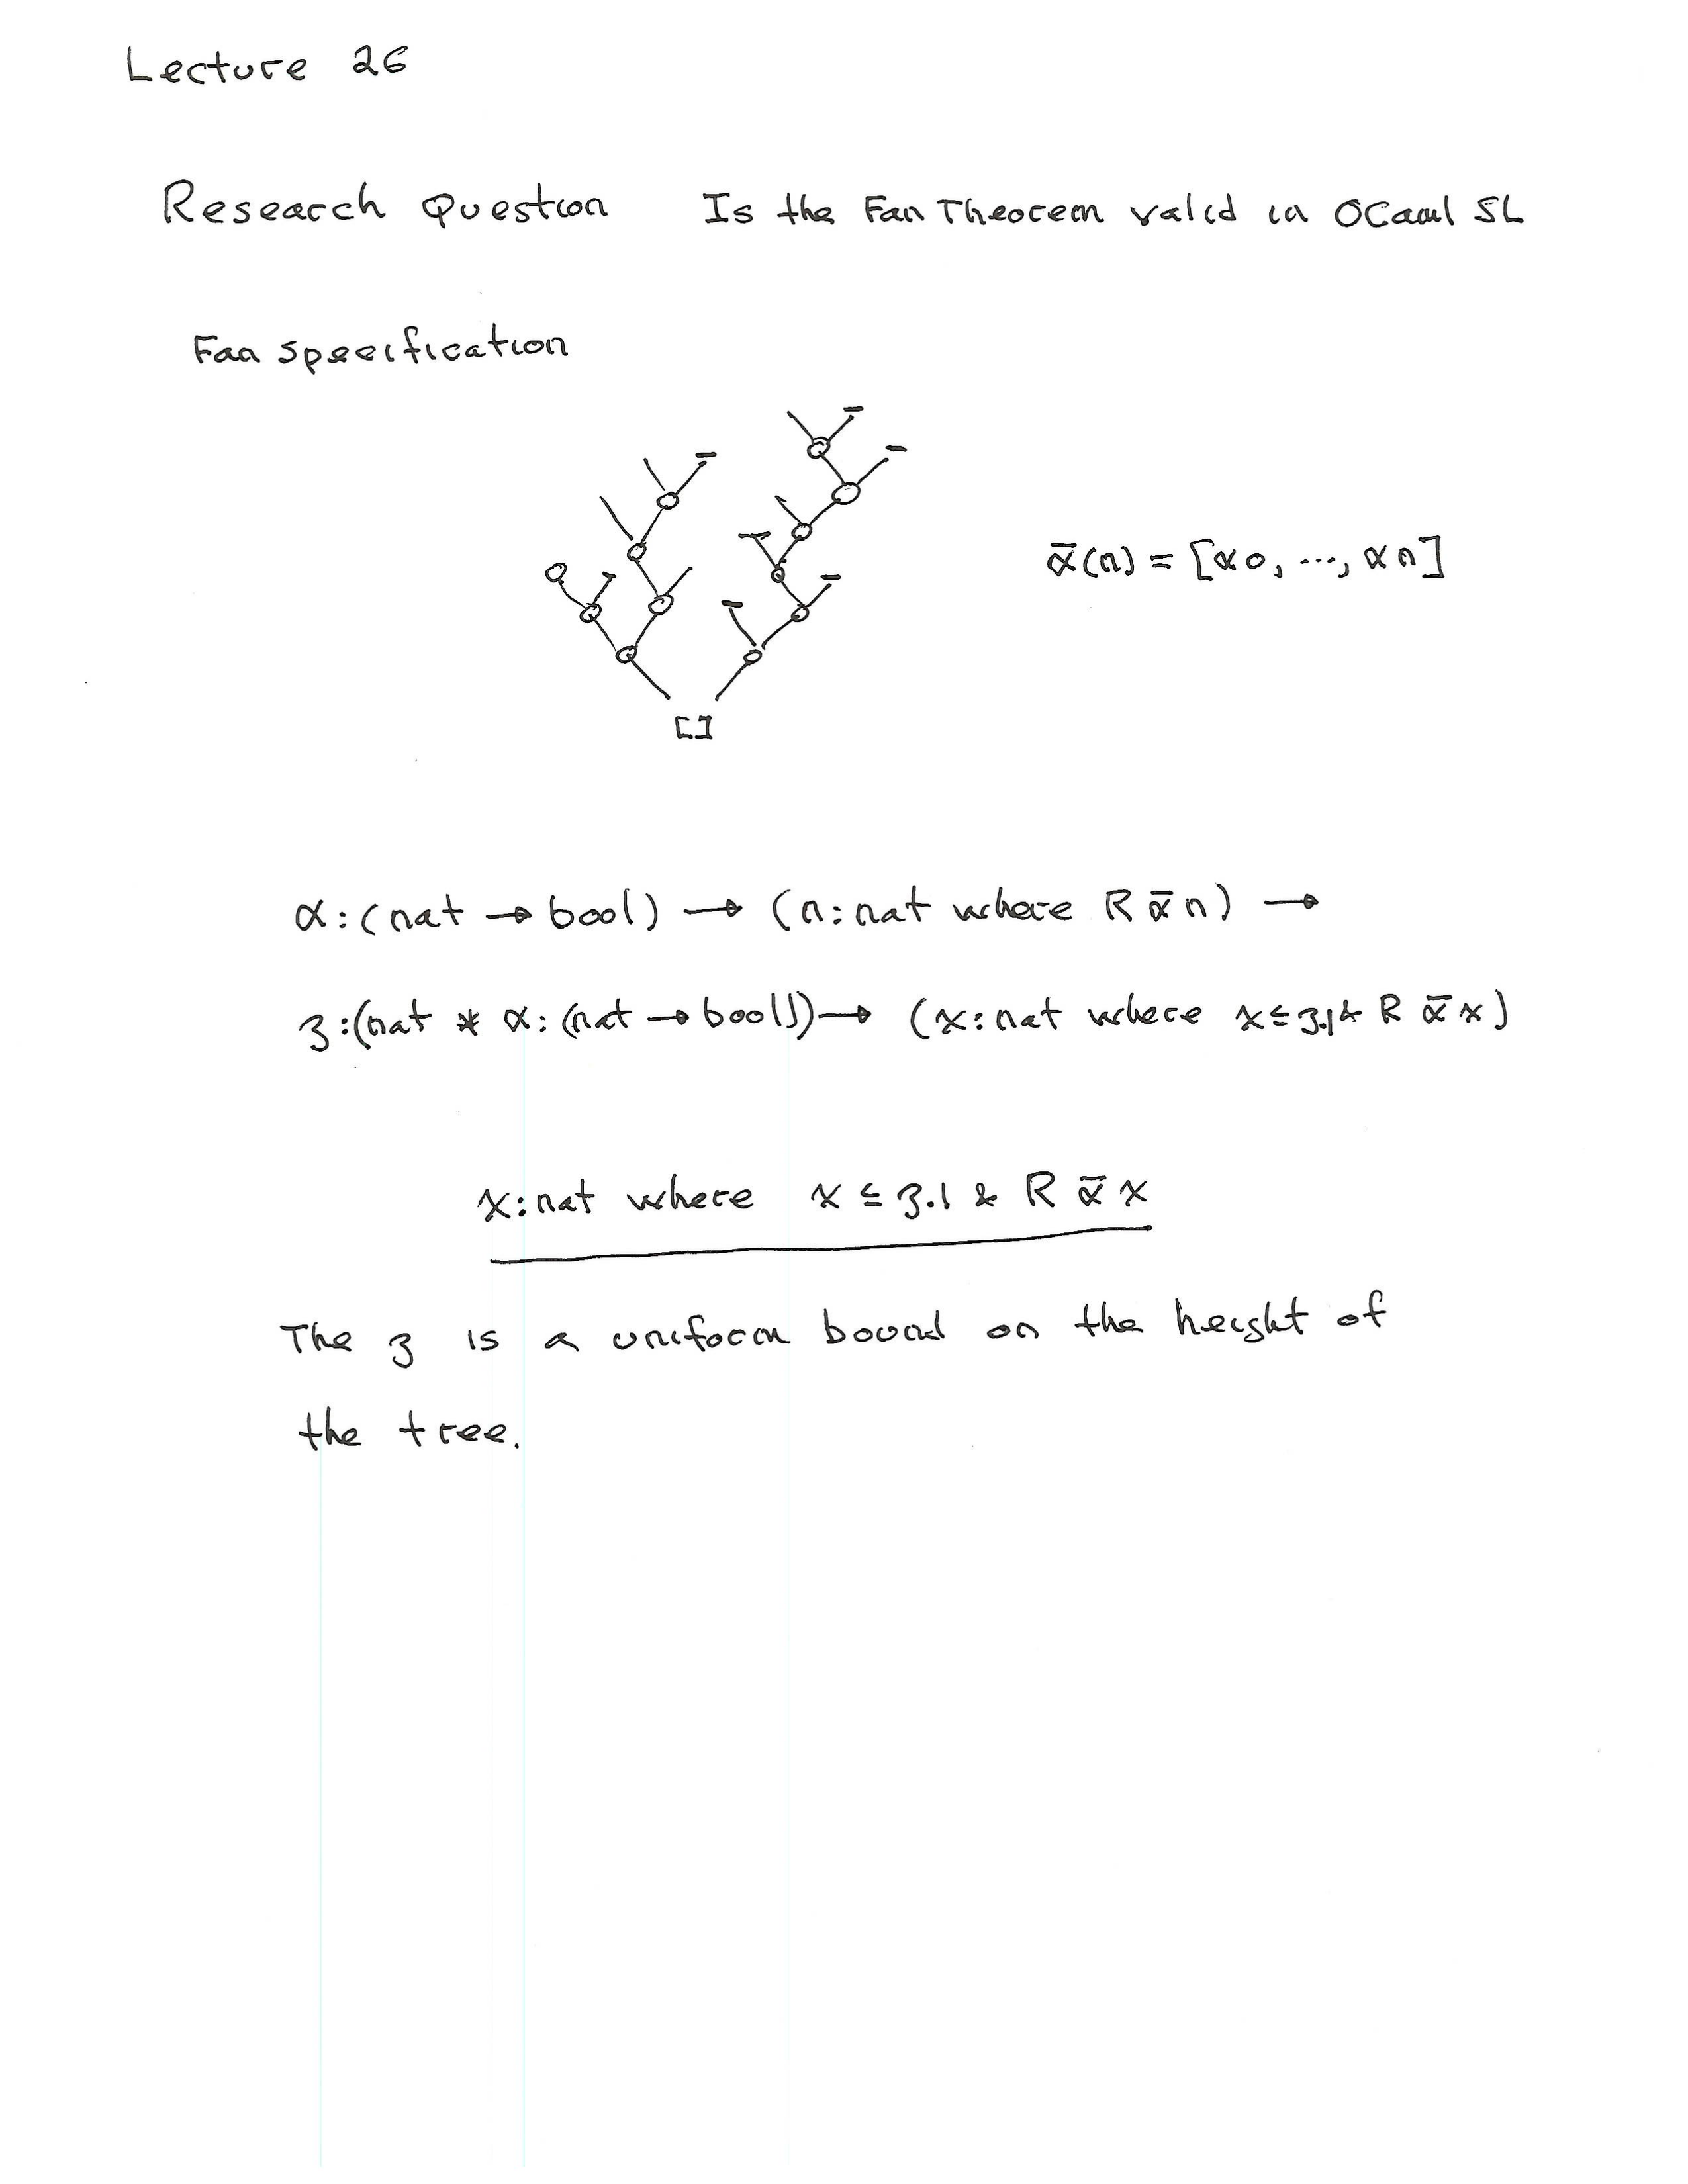 Lecture 26
Research Question Is the Fan Theorem valid in OCaml SL
Fan specification
ᾱ(n) = [α0, ..., αn]
[]
α:(nat → bool) → (n:nat where R ᾱ n) →
3:(nat * α:(nat → bool)) → (x:nat where x ≤ 3.1 & R ᾱ x)
x:nat where x ≤ 3.1 & R ᾱ x
The 3 is a uniform bound on the height of
the tree.